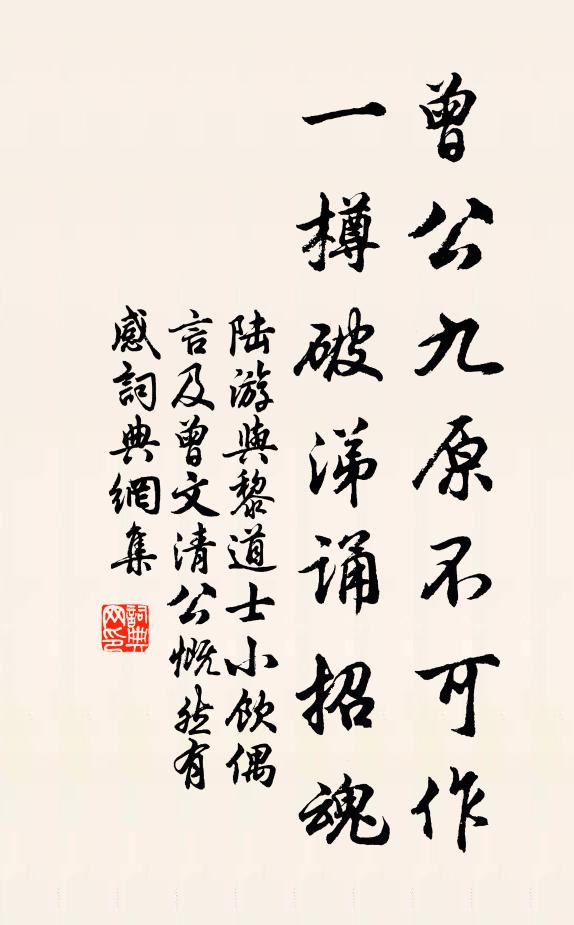 曾公九原不可作
一樽破涕诵招魂
陆游與黎道士小飲偶
言及曾文清公慨然有
感詞典網集
詞典
网印